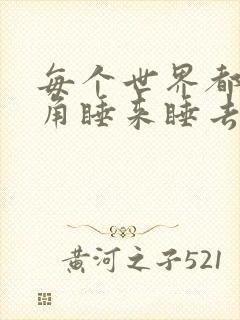 每个世界都
角睡来睡去
黄河之子521